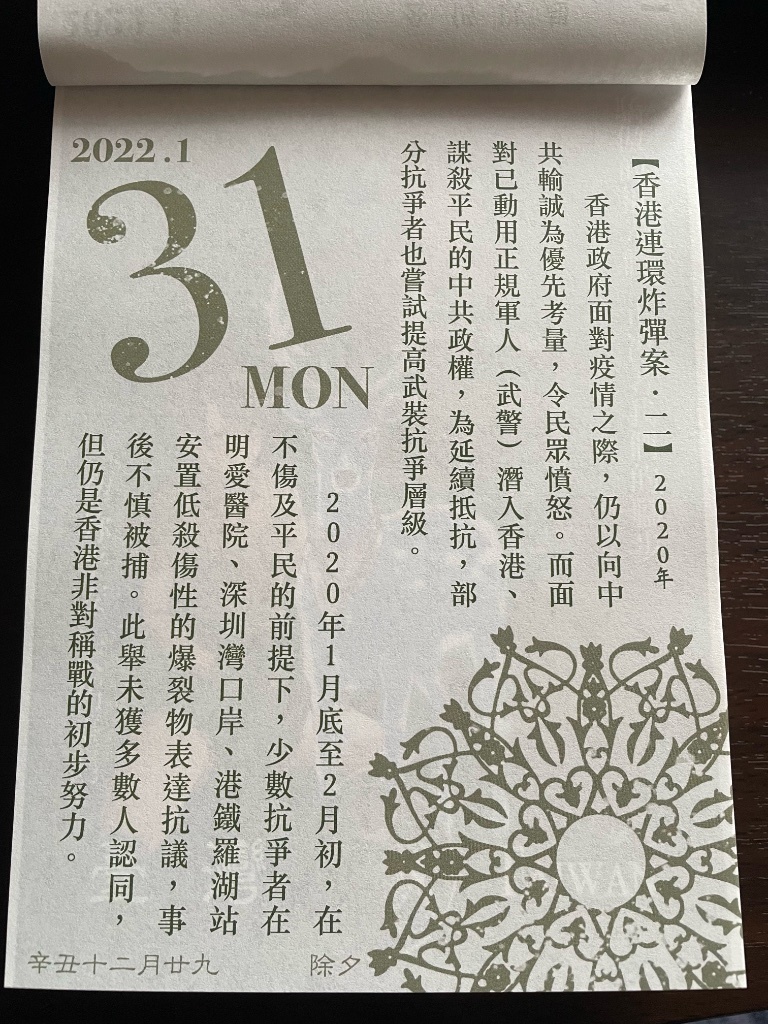 2022.1
31
MON
【香港連環炸彈案．二】2020年
香港政府面對疫情之際，仍以向中
共輸誠為優先考量，令民眾憤怒。而面
對已動用正規軍人（武警）潛入香港、
謀殺平民的中共政權，為延續抵抗，部
分抗爭者也嘗試提高武裝抗爭層級。
2020年1月底至2月初，在
不傷及平民的前提下，少數抗爭者在
明愛醫院、深圳灣口岸、港鐵羅湖站
安置低殺傷性的爆裂物表達抗議，事
後不慎被捕。此舉未獲多數人認同，
但仍是香港非對稱戰的初步努力。
辛丑十二月廿九
除夕